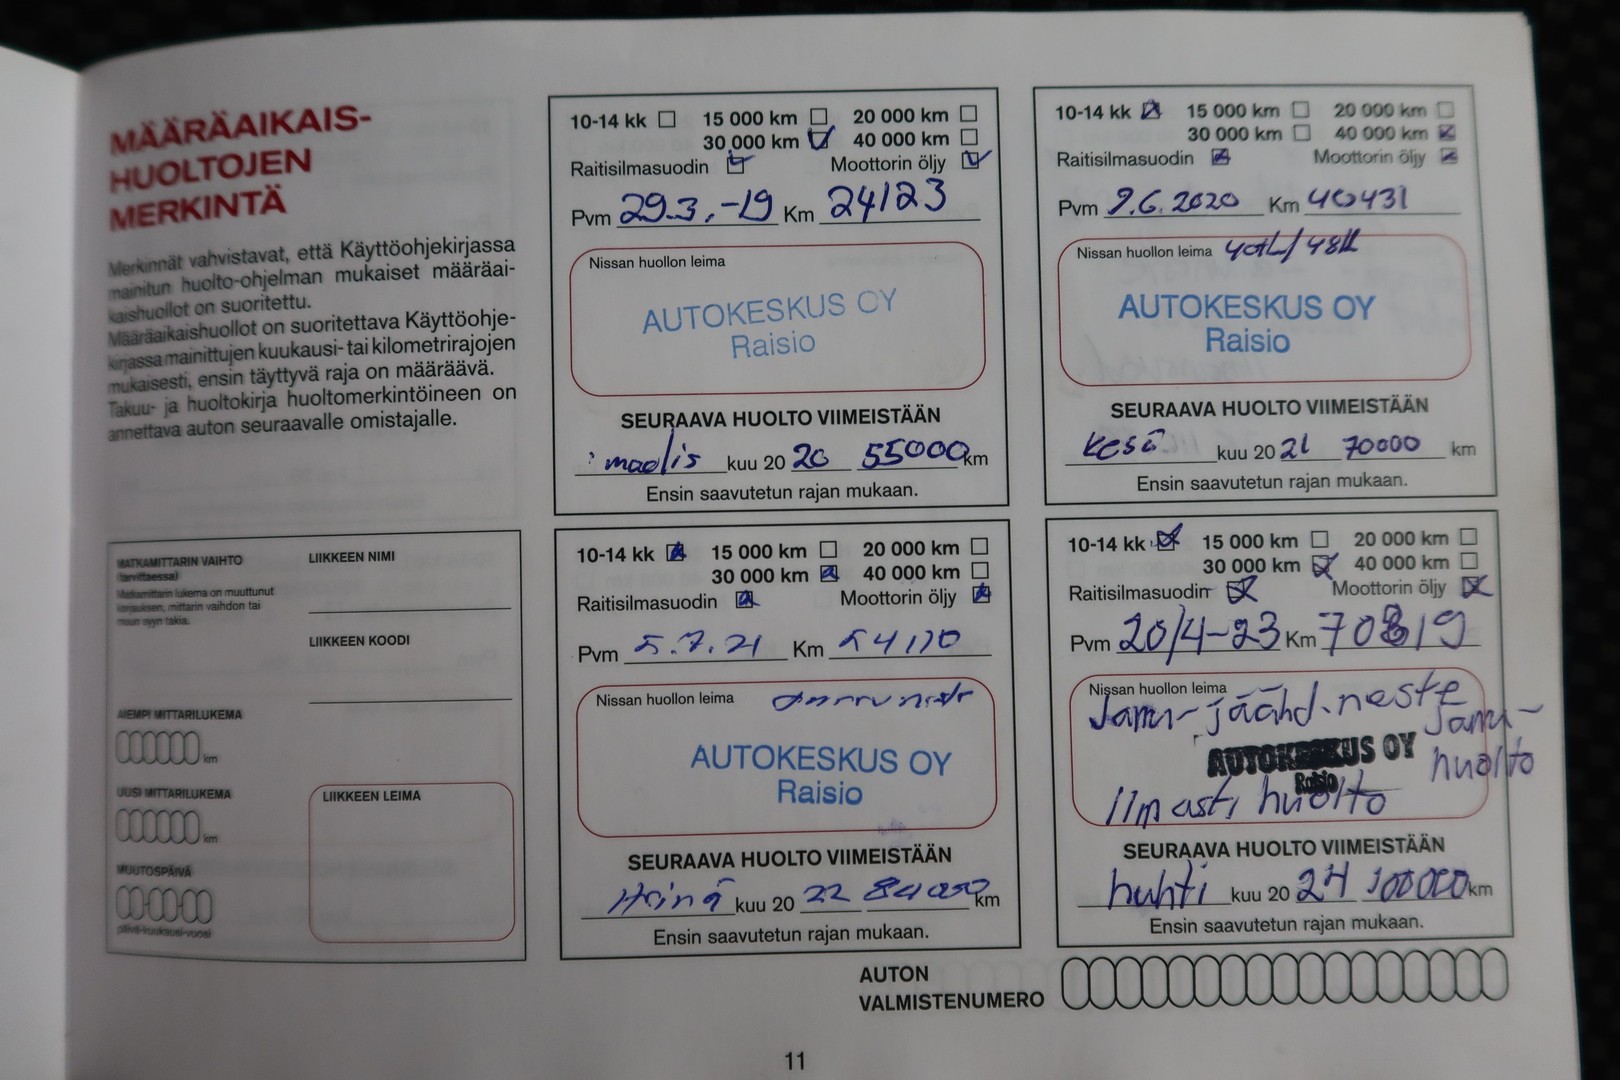 MÄÄRÄAIKAIS-
HUOLTOJEN
MERKINTÄ
Merkinnät vahvistavat, että Käyttöohjekirjassa
mainitun huolto-ohjelman mukaiset määräai-
kaishuollot on suoritettu.
Määräaikaishuollot on suoritettava Käyttöohje-
kirjassa mainittujen kuukausi- tai kilometrirajojen
mukaisesti, ensin täyttyvä raja on määräävä.
Takuu- ja huoltokirja huoltomerkintöineen on
annettava auton seuraavalle omistajalle.
MATKAMITTARIN VAIHTO
(tarvittaessa)
Matkamittarin lukema on muuttunut
korjauksen, mittarin vaihdon tai
muun syyn takia.
AIEMPI MITTARILUKEMA
km
UUSI MITTARILUKEMA
km
MUUTOSPÄIVÄ
päivä-kuukausi-vuosi
LIIKKEEN NIMI
LIIKKEEN KOODI
LIIKKEEN LEIMA
10-14 kk 15 000 km 20 000 km
30 000 km 40 000 km
Raitisilmasuodin Moottorin öljy
Pvm 29.3.-19 Km 24123
Nissan huollon leima
AUTOKESKUS OY
Raisio
SEURAAVA HUOLTO VIIMEISTÄÄN
maalis kuu 20 20 55000 km
Ensin saavutetun rajan mukaan.
10-14 kk 15 000 km 20 000 km
30 000 km 40 000 km
Raitisilmasuodin Moottorin öljy
Pvm 9.6.2020 Km 40431
Nissan huollon leima
AUTOKESKUS OY
Raisio
SEURAAVA HUOLTO VIIMEISTÄÄN
Kesä kuu 20 21 70000 km
Ensin saavutetun rajan mukaan.
10-14 kk 15 000 km 20 000 km
30 000 km 40 000 km
Raitisilmasuodin Moottorin öljy
Pvm 5.7.21 Km 54110
Nissan huollon leima
AUTOKESKUS OY
Raisio
SEURAAVA HUOLTO VIIMEISTÄÄN
Heinä kuu 20 22 84000 km
Ensin saavutetun rajan mukaan.
10-14 kk 15 000 km 20 000 km
30 000 km 40 000 km
Raitisilmasuodin Moottorin öljy
Pvm 20/4-23 Km 70819
Nissan huollon leima
Jarru- jäähd.neste
Jarru-
AUTOKESKUS OY
huolto
Raisio
Ilmasti huolto
SEURAAVA HUOLTO VIIMEISTÄÄN
huhti kuu 20 24 100000 km
Ensin saavutetun rajan mukaan.
AUTON
VALMISTENUMERO
11